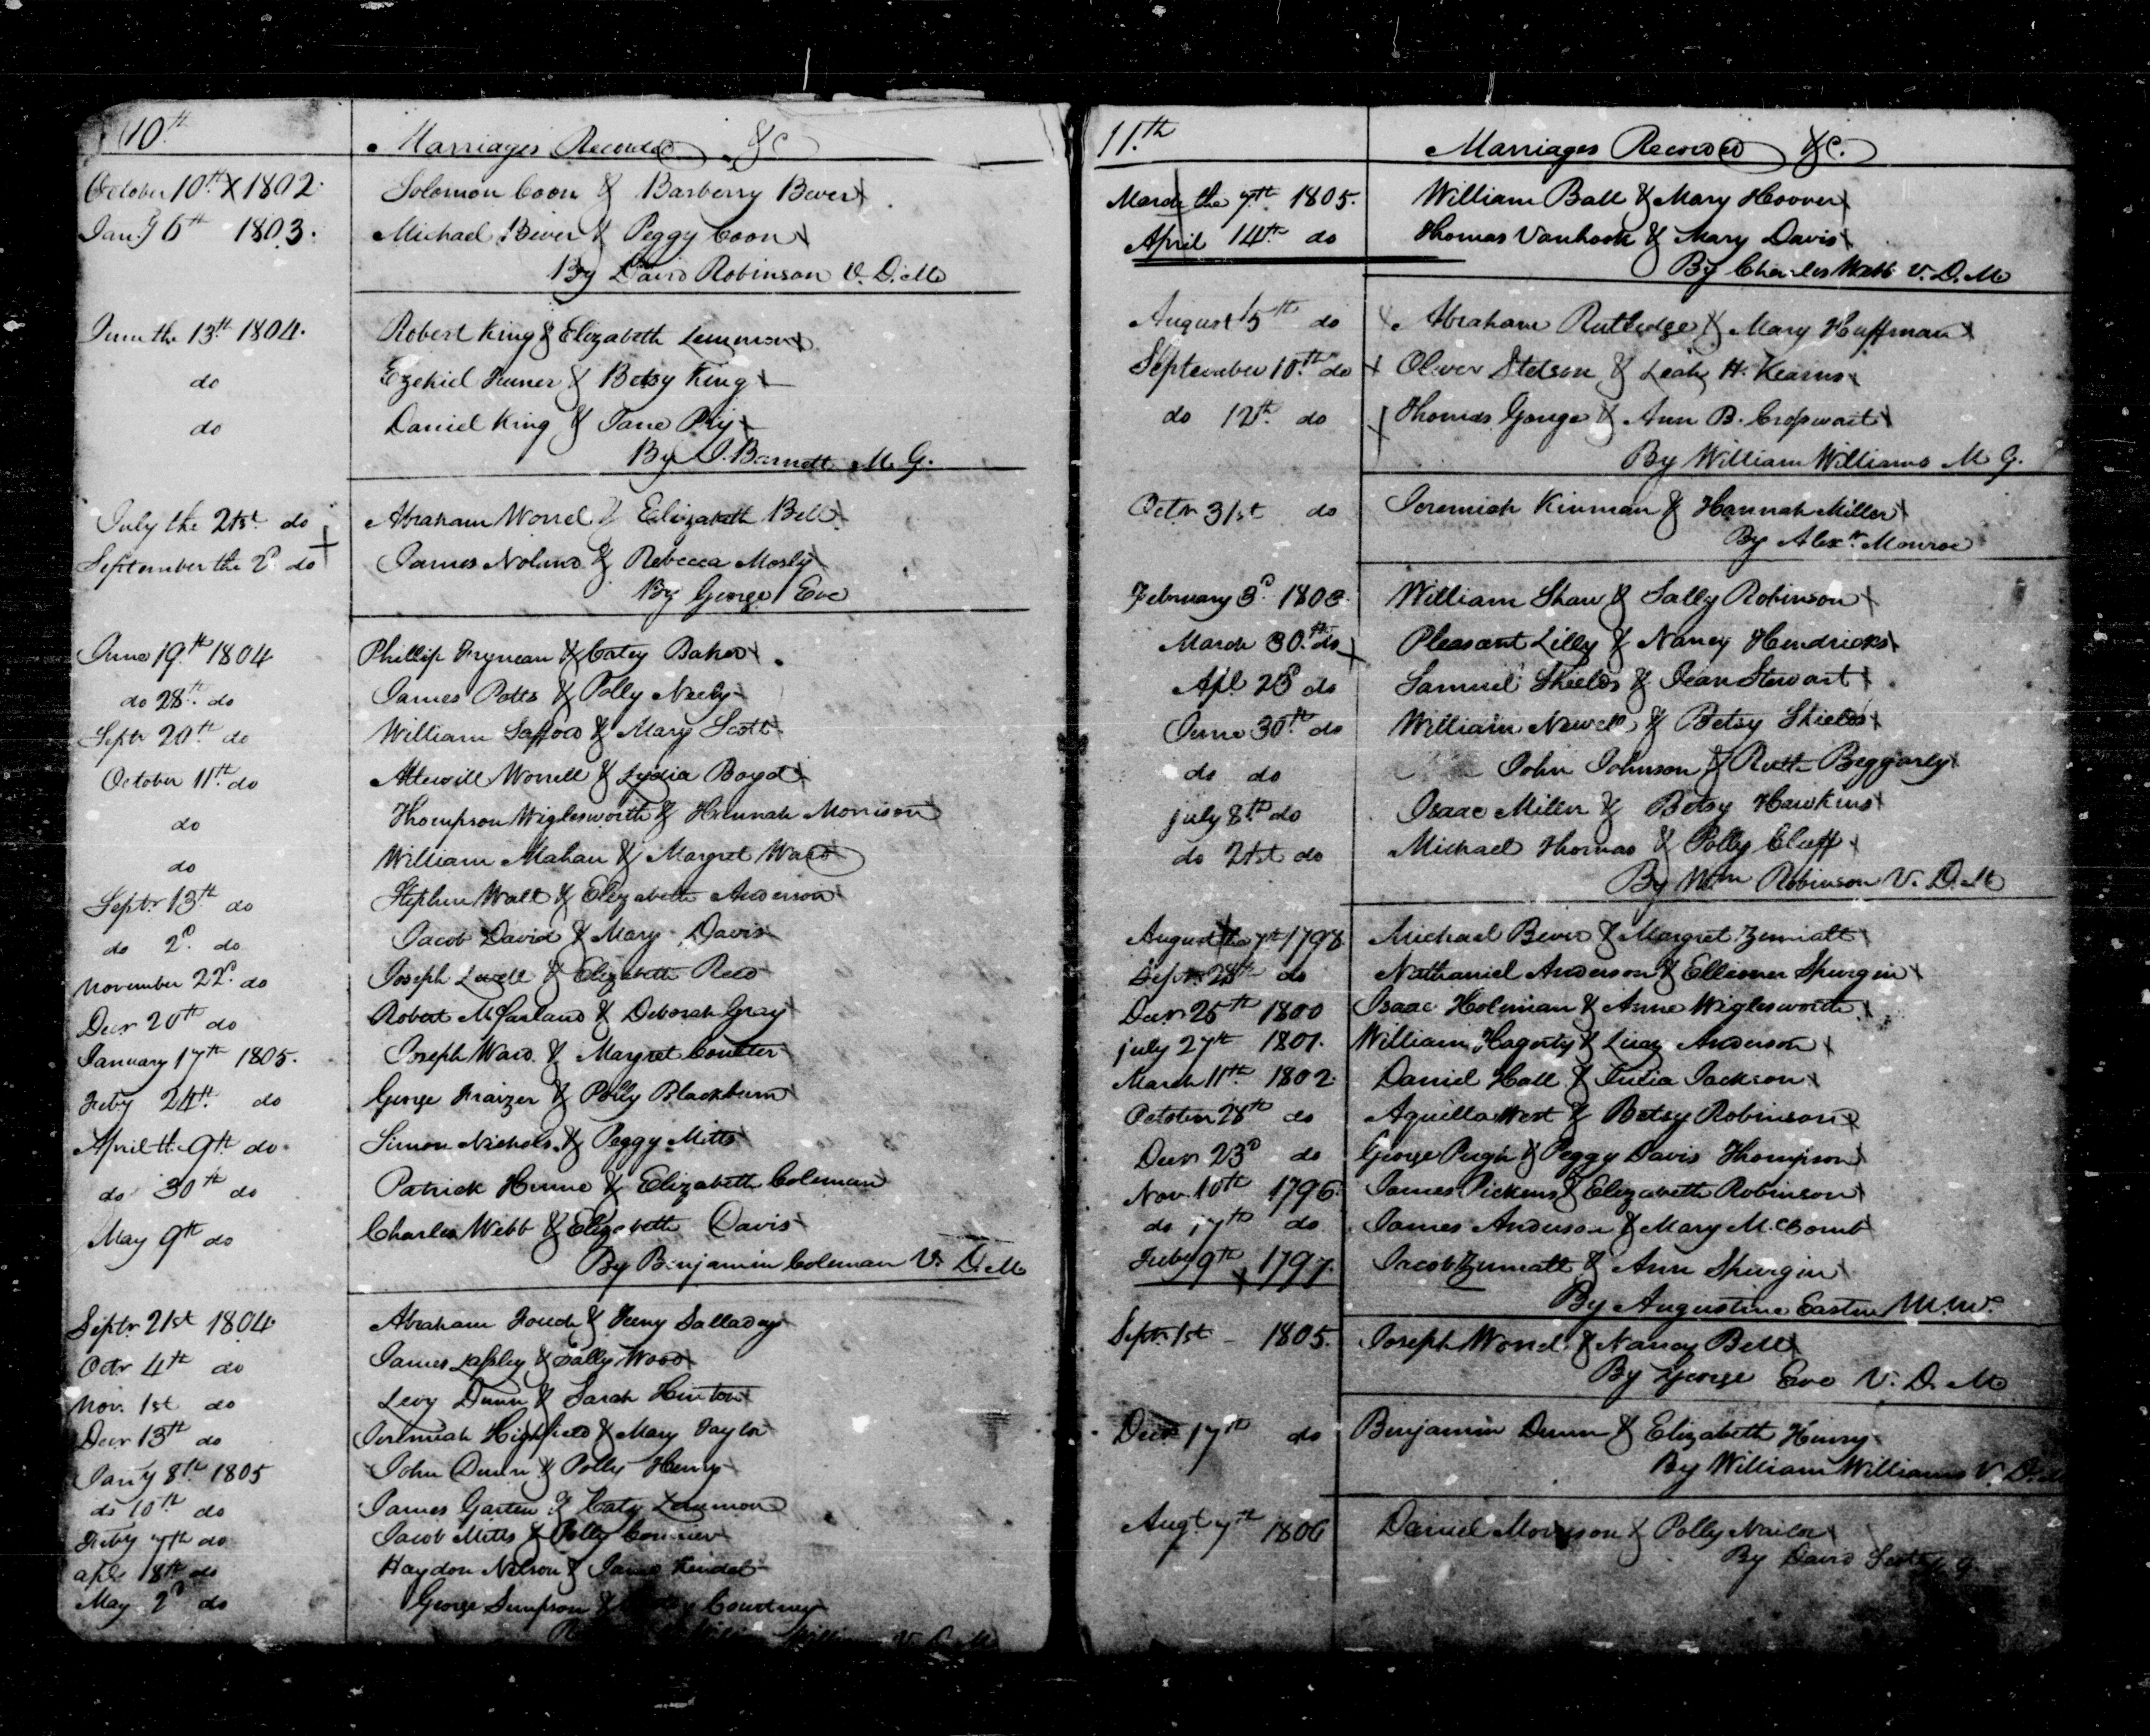 10th
Marriages Recorded &C
October 10th X 1802. Solomon Coon & Barberry Bever
Jany 6th 1803. Michael Bever & Peggy Coon
By David Robinson V. D. M
June the 13th 1804. Robert King & Elizabeth Lemmon
do Ezekiel Turner & Betsy King
do Daniel King & Jane
By J. Barnett M. G.
July the 21st do Abraham Worrel & Elizabeth Bell
September the 2d do James Noland & Rebecca Mosly
By George Eve
June 19th 1804 Phillip Fryman & Catey Baker
do 28th do James Potts & Polly Neely
Septr 20th do William Safford & Mary Scott
October 11th do Attewill Worrell & Lydia Boyd
do Thompson Wiglesworth & Hannah Morrison
do William Mahan & Margret Ward
Septr 13th do Stephen Wall & Elizabeth Anderson
do 2d do Jacob David & Mary Davis
November 22d do Joseph Lovell & Elizabeth Reed
Decr 20th do Robert McFarland & Deborah Gray
January 17th 1805. Joseph Ward & Margret Coulter
Feby 24th do George Fraizer & Polly Blackburn
April the 9th do Simon Nichols & Peggy Mitts
do 30th do Patrick Hume & Elizabeth Coleman
May 9th do Charles Webb & Elizabeth Davis
By Benjamin Coleman V. D. M
Septr 21st 1804 Abraham Fouch & Feny Salladay
Octr 4th do James Lapsley & Sally Wood
Nov. 1st do Levy Dunn & Sarah Hinton
Decr 13th do Jeremiah Highfield & Mary Taylor
Jany 8th 1805 John Dunn & Polly Henry
do 10th do James Garten & Caty Lemmon
Feby 7th do Jacob Mitts & Polly
apl 18th do Haydon Nelson & Jane Kendel
May 2d do George Simpson & Courtney
William Williams V. D. M
11.th
Marriages Recorded &C.
March the 7th 1805. William Ball & Mary Hoover
April 14th do Thomas Vanhook & Mary Davis
By Charles Webb V. D. M
August 15th do Abraham Rutledge & Mary Huffman
September 10th do Oliver Stetson & Leah H. Kearns
do 12th do Thomas Gouge & Ann B. Cropwait
By William Williams M G.
Octr 31st do Jeremiah Kinman & Hannah Miller
By Alexr Monroe
February 3d 1803. William Shaw & Sally Robinson
March 30th do Pleasant Lilly & Nancy Hendricks
Apl 28 do Samuel Shields & Jean Stewart
June 30th do William Newell & Betsy Shields
do do John Johnson & Ruth Beggarly
july 8th do Isaac Miller & Betsy Hawkins
do 21st do Michael Thomas & Polly Cluff
By Wm Robinson V. D. M
August the 7th 1798 Michael Bever & Margret Zumalt
Septr 28th do Nathaniel Anderson & Ellioner Spurgin
Decr 25th 1800 Isaac Holman & Anne Wiglesworth
july 27th 1801. William Hagerty & Lucy Anderson
March 11th 1802 Daniel Hall & Julia Jackson
October 28th do Aquilla West & Betsy Robinson
Decr 23d do George Pugh & Peggy Davis Thompson
Nov 10th 1796 James Pickens & Elizabeth Robinson
do 17th do James Anderson & Mary McComb
Feby 9th 1797. Jacob Zumalt & Ann Spurgin
By Augustine Easten
Septr 1st - 1805. Joseph Worrel & Nancy Bell
By George Eve V. D. M
Decr 17th do Benjamin Dunn & Elizabeth Henry
By William Williams V. D. M
Augt 7th 1806 Daniel Morrison & Polly Nailor
By David